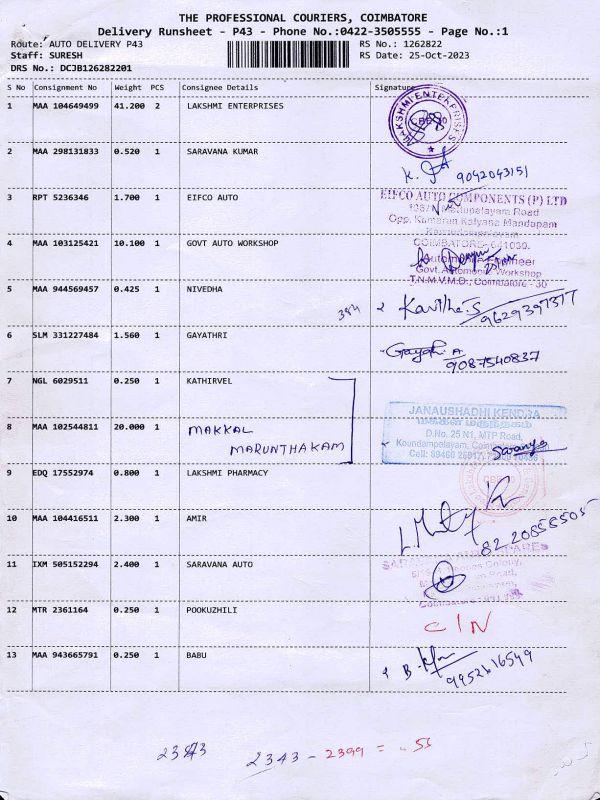 THE PROFESSIONAL COURIERS, COIMBATORE
Delivery Runsheet - P43 - Phone No.:0422-3505555 - Page No.:1
Route: AUTO DELIVERY P43 RS No.: 1262822
Staff: SURESH RS Date: 25-Oct-2023
DRS No.: DCJB126282201
S No Consignment No Weight PCS Consignee Details Signature
1 MAA 104649499 41.200 2 LAKSHMI ENTERPRISES
LAKSHMI ENTERPRISES
2 MAA 298131833 0.520 1 SARAVANA KUMAR
9042043151
3 RPT 5236346 1.700 1 EIFCO AUTO
EIFCO AUTO COMPONENTS (P) LTD
Mettupalayam Road
Opp. Kumaran Kalyana Mandapam
COIMBATORE- 641030.
4 MAA 103125421 10.100 1 GOVT AUTO WORKSHOP
Engineer
Govt. Automobile Workshop
T.N.M.V.M.D., Coimbatore - 30
5 MAA 944569457 0.425 1 NIVEDHA
Kavitha.S
9629397377
6 SLM 331227484 1.560 1 GAYATHRI
Gayathi. A
9087540837
7 NGL 6029511 0.250 1 KATHIRVEL
8 MAA 102544811 20.000 1 MAKKAL
MARUNTHAKAM
JANAUSHADHI KENDRA
மக்கள் மருந்தகம்
D.No. 25 N1, MTP Road,
Koundampalayam, Coimbatore
Saranya
9 EDQ 17552974 0.800 1 LAKSHMI PHARMACY
10 MAA 104416511 2.300 1 AMIR
82 20858505
11 IXM 505152294 2.400 1 SARAVANA AUTO
12 MTR 2361164 0.250 1 POOKUZHILI
C/N
13 MAA 943665791 0.250 1 BABU
9952616549
2343 - 2399 = -55